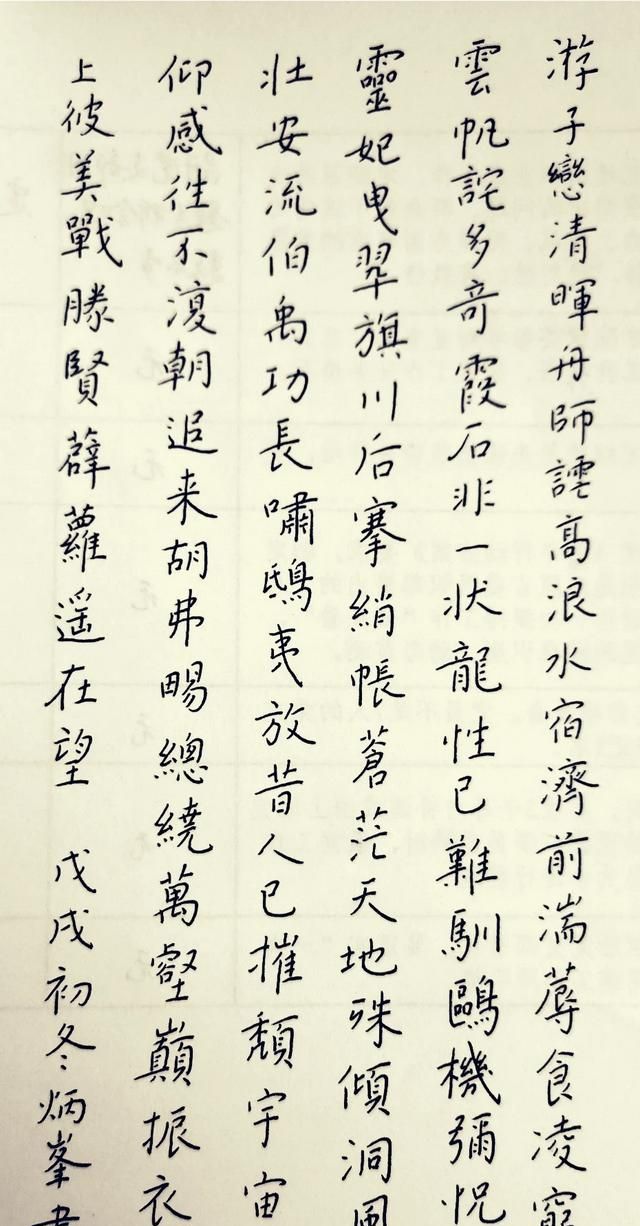 游子戀清暉舟師譁高浪水宿濟前湍蓐食凌窮
雲帆詫多奇霞石非一状龍性已難馴鷗機彌怳
靈妃曳翠旗川后搴綃帳蒼茫天地殊傾洞風
壮安流伯禹功長嘯鴟夷放昔人已摧頹宇宙
仰感往不復朝追来胡弗暘總繞萬壑巔振衣
上彼美戰勝賢薜蘿遥在望 戊戌初冬炳峯書